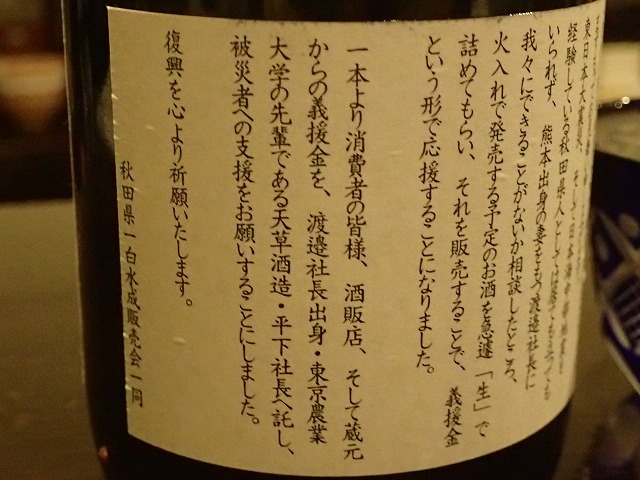 東日本大震災、そして日本海中部地震を
経験している秋田県人としては居ても立っても
いられず、熊本出身の妻をもつ渡邉社長に
我々にできることがないか相談したところ、
火入れで発売する予定のお酒を急遽「生」で
詰めてもらい、それを販売することで、義援金
という形で応援することになりました。
一本より消費者の皆様、酒販店、そして蔵元
からの義援金を、渡邉社長出身・東京農業
大学の先輩である天草酒造・平下社長へ託し、
被災者への支援をお願いすることにしました。
復興を心より祈願いたします。
秋田県一白水成販売会一同